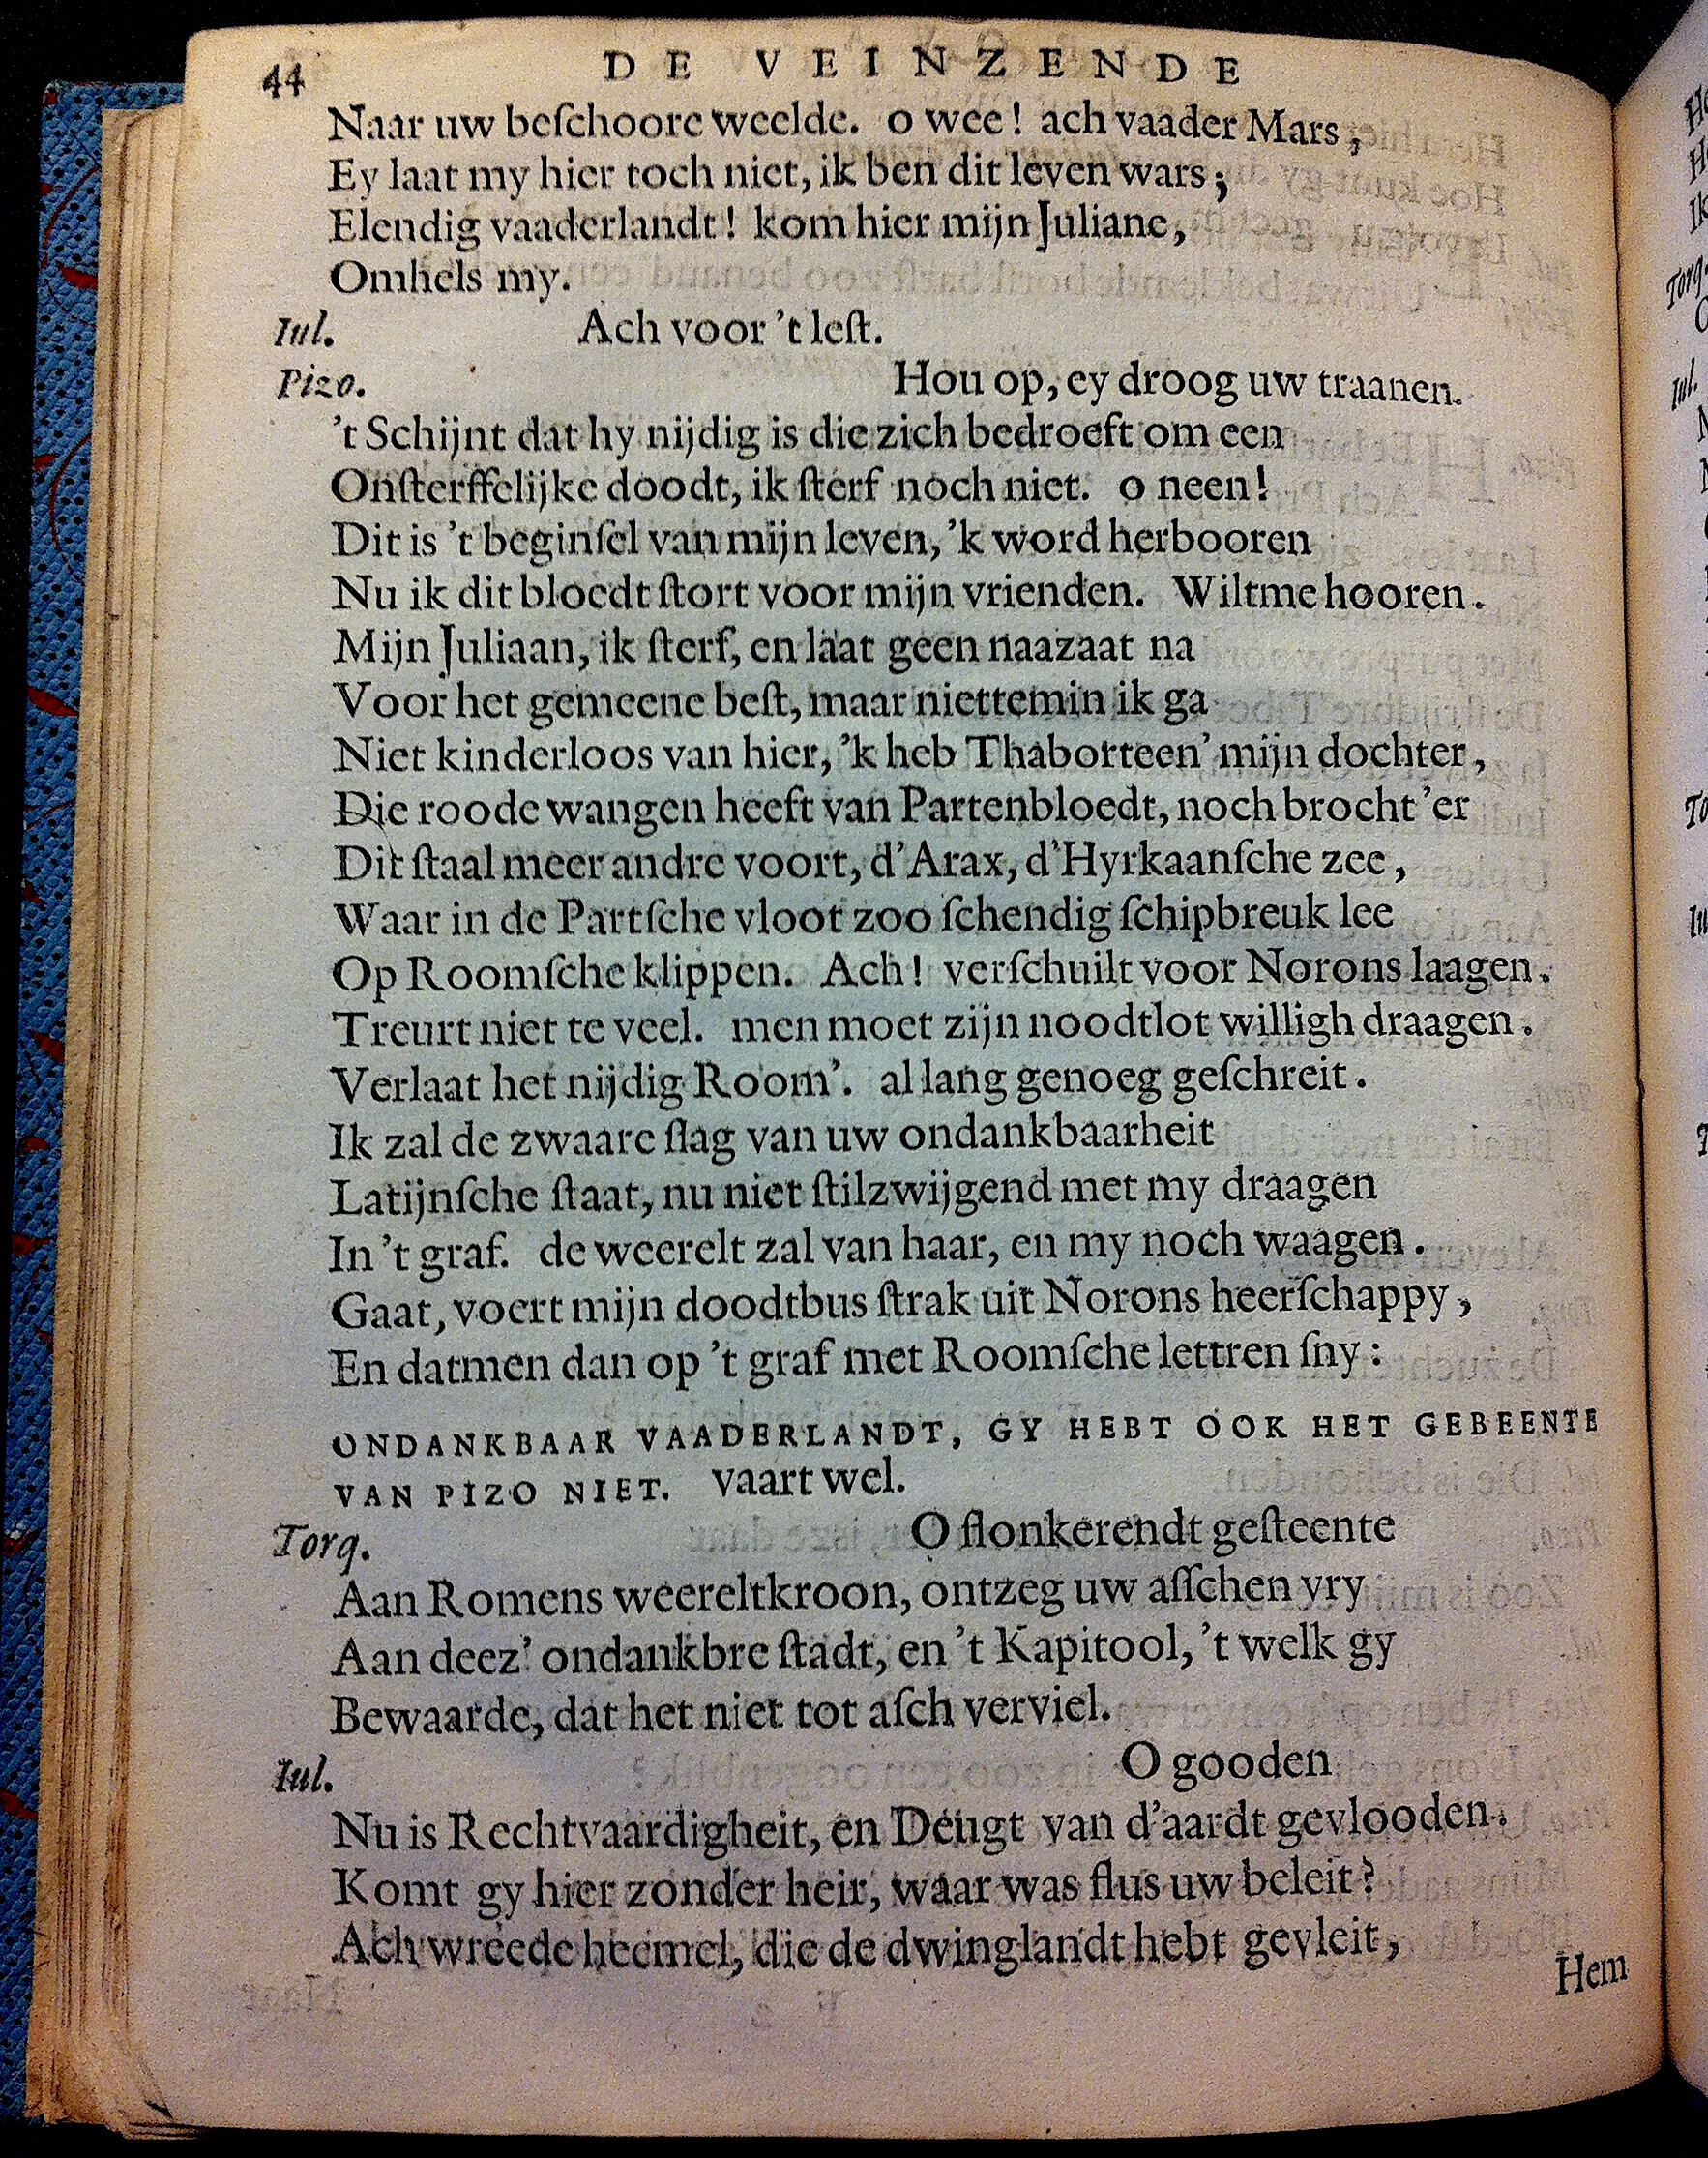 44 DE VEINZENDE
Naar uw beſchoore weelde. o wee! ach vaader Mars,
Ey laat my hier toch niet, ik ben dit leven wars;
Elendig vaaderlandt! kom hier mijn Juliane,
Omhels my.
Iul. Ach voor 't leſt.
Pizo. Hou op, ey droog uw traanen.
't Schijnt dat hy nijdig is die zich bedroeft om een
Onſterffelijke doodt, ik ſterf noch niet. o neen!
Dit is 't beginſel van mijn leven, 'k word herbooren
Nu ik dit bloedt ſtort voor mijn vrienden. Wiltme hooren.
Mijn Juliaan, ik ſterf, en laat geen naazaat na
Voor het gemeene beſt, maar niettemin ik ga
Niet kinderloos van hier, 'k heb Thaborteen' mijn dochter,
Die roode wangen heeft van Partenbloedt, noch brocht 'er
Dit ſtaal meer andre voort, d'Arax, d'Hyrkaanſche zee,
Waar in de Partſche vloot zoo ſchendig ſchipbreuk lee
Op Roomſche klippen. Ach! verſchuilt voor Norons laagen.
Treurt niet te veel. men moet zijn noodtlot willigh draagen.
Verlaat het nijdig Room'. al lang genoeg geſchreit.
Ik zal de zwaare ſlag van uw ondankbaarheit
Latijnſche ſtaat, nu niet ſtilzwijgend met my draagen
In 't graf. de weerelt zal van haar, en my noch waagen.
Gaat, voert mijn doodtbus ſtrak uit Norons heerſchappy,
En datmen dan op 't graf met Roomſche lettren ſny:
ONDANKBAAR VAADERLANDT, GY HEBT OOK HET GEBEENTE
VAN PIZO NIET. vaart wel.
Torq. O flonkerendt geſteente
Aan Romens weereltkroon, ontzeg uw aſſchen vry
Aan deez' ondankbre ſtadt, en 't Kapitool, 't welk gy
Bewaarde, dat het niet tot aſch verviel.
Iul. O gooden
Nu is Rechtvaardigheit, en Deugt van d'aardt gevlooden.
Komt gy hier zonder heir, waar was flus uw beleit?
Ach wreede heemel, die de dwinglandt hebt gevleit,
Hem